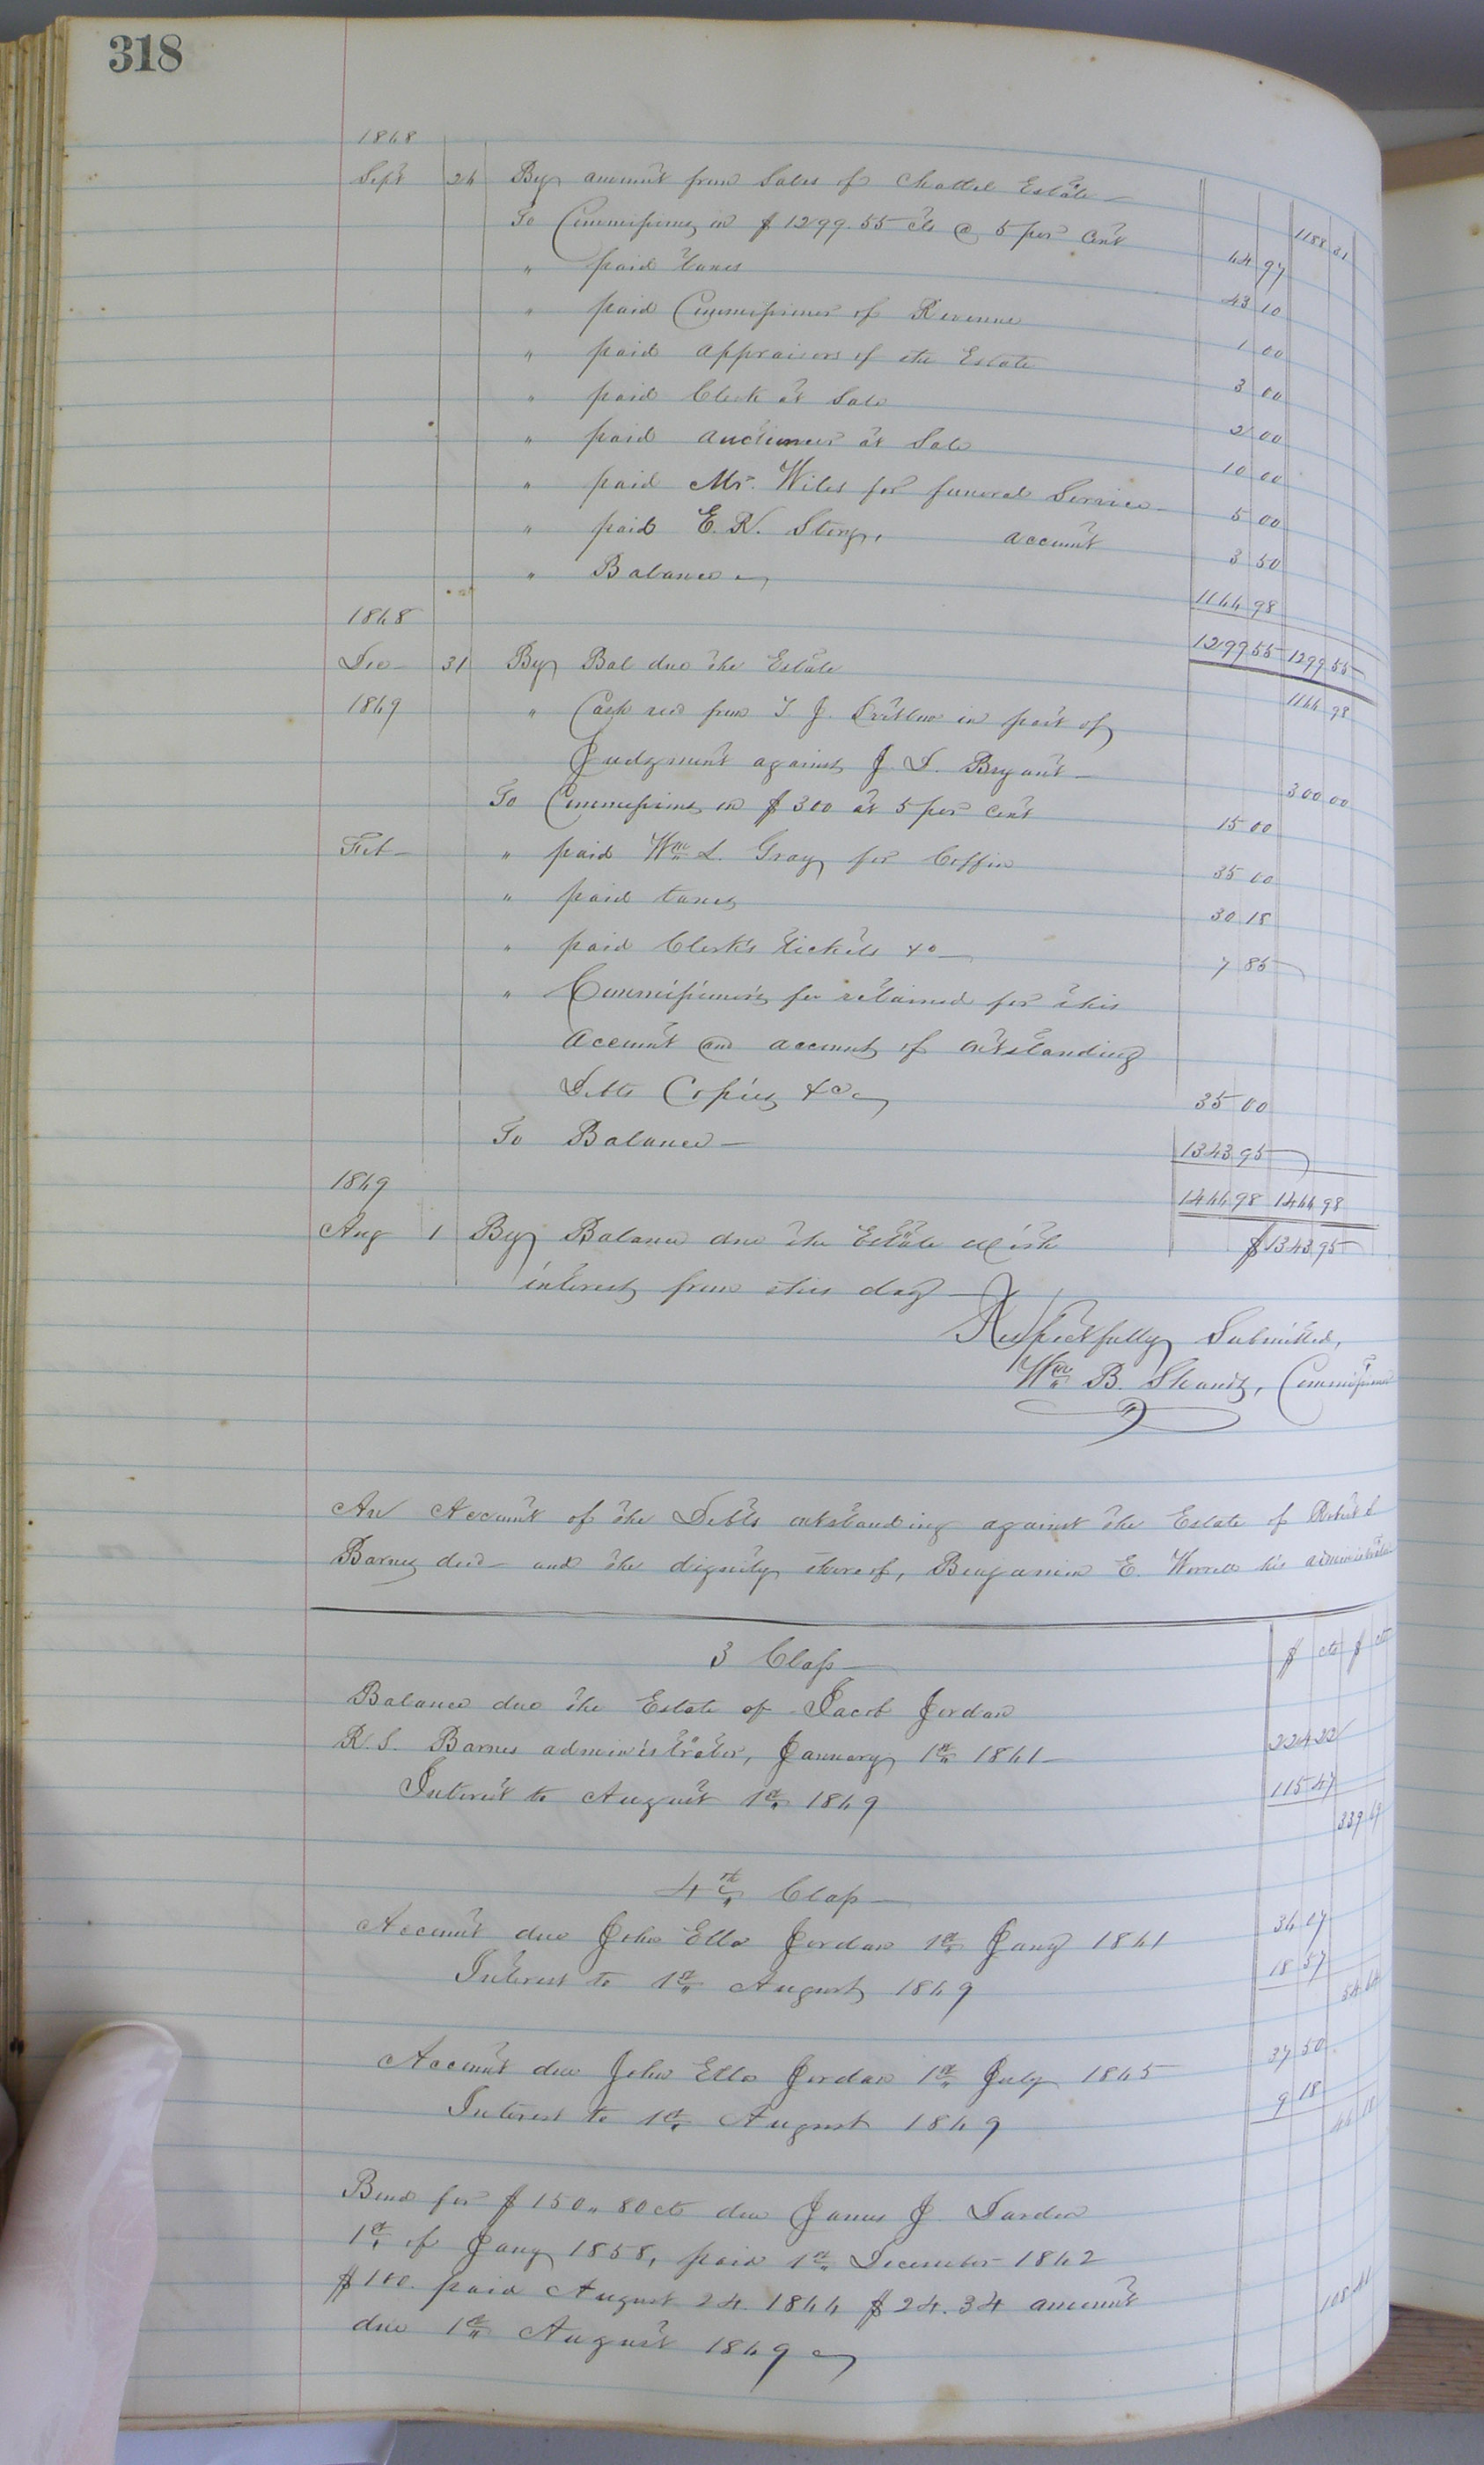 318
1868
Sept 26 By amount from Sales of Chattel Estate — 1188 31
To Commissions on $1299.55 cts @ 5 per cent 64 97
" paid taxes 43 10
" paid Commissioner of Revenue 1 00
" paid appraisers of the Estate 3 00
" paid Clerk at Sale 2 00
" paid auctioneer at Sale 10 00
" paid Mr. Wiles for funeral Service — 5 00
" paid E. R. Story, account 3 50
" Balance 1166 98
1868 1299 55 1299 55
Dec 31 By Bal due the Estate 1166 98
1869 " Cash recd from T J. in part of
Judgment against J. D. Bryant — 300 00
To Commissions on $300 at 5 per cent 15 00
Feb — " paid Wm L. Gray for Coffin 35 00
" paid taxes 30 18
" paid Clerk's tickets &c — 7 85
" Commissioner's fee retained for this
account and account of outstanding
Debts Copies &c 35 00
To Balance — 1343 95
1869 1466 98 1466 98
Aug 1 By Balance due the Estate with $1343 95
interest from this day —
Respectfully Submitted,
Wm B. Shands, Commissioner
An Account of the Debts outstanding against the Estate of Robert S
Barnes decd — and the dignity thereof, Benjamin E. Worrell his administrator
3 Class — $ cts $ cts
Balance due the Estate of Jacob Jordan
R. S. Barnes administrator, January 1st 1861 — 224 22
Interest to August 1st 1869 115 47
339 69
4th Class —
Account due John Ello Jordan 1st Jany 1861 36 07
Interest to 1st August 1869 18 57
54 64
Account due John Ello Jordan 1st July 1865 37 50
Interest to 1st August 1869 9 18
46 68
Bond for $150 " 80 cts due James J. Darden
1st of Jany 1858, paid 1st December 1862
$100. paid August 24. 1866 $24.34 amount
due 1st August 1869 108